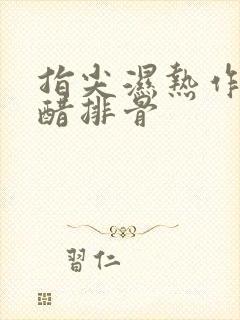 指尖濕熱作
醋排骨
習仁